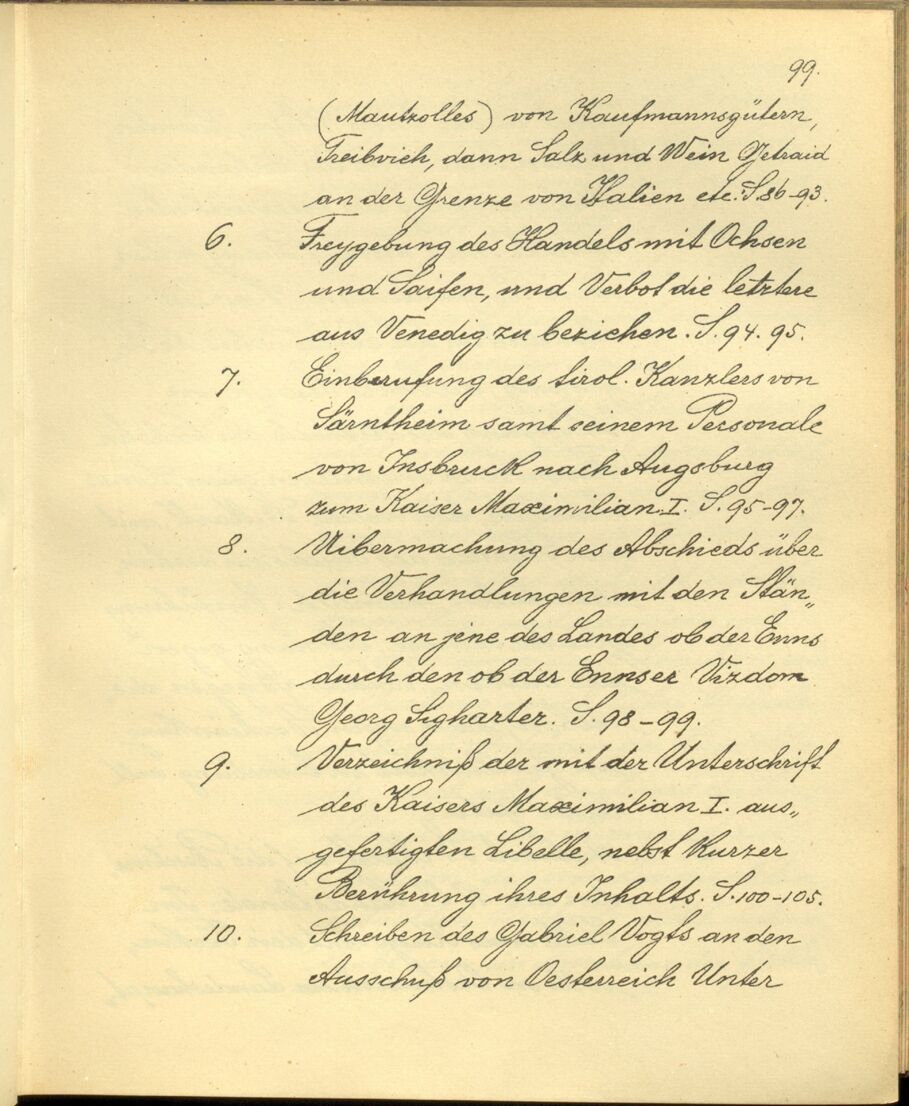 99.
(Mautzolles) von Kaufmannsgütern,
Treibvieh, dann Salz und Wein Getraid
an der Grenze von Italien etc: S 86-93.
6. Freygebung des Handels mit Ochsen
und Saifen, und Verbot die letztere
aus Venedig zu beziehen. S. 94. 95.
7. Einberufung des tirol. Kanzlers von
Särntheim samt seinem Personale
von Insbruck nach Augsburg
zum Kaiser Maximilian. I. S. 95-97.
8. Uibermachung des Abschieds über
die Verhandlungen mit den Stän„
den an jene des Landes ob der Enns
durch den ob der Ennser Vizdom
Georg Sigharter. S. 98-99.
9. Verzeichniß der mit der Unterschrift
des Kaisers Maximilian I. aus„
gefertigten Libelle, nebst kurzer
Berührung ihres Inhalts. S. 100-105.
10. Schreiben des Gabriel Vogts an den
Ausschuß von Oesterreich Unter